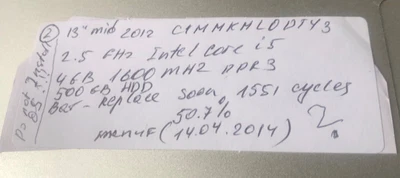 ② 13" mid 2012 C1MMKHLODTY3
2.5 GHz Intel Core i5
4GB 1600 MHZ DDR3
500 GB HDD
Bat - Replace soon, 1551 cycles
50.7%
manuf (14.04.2014) ?